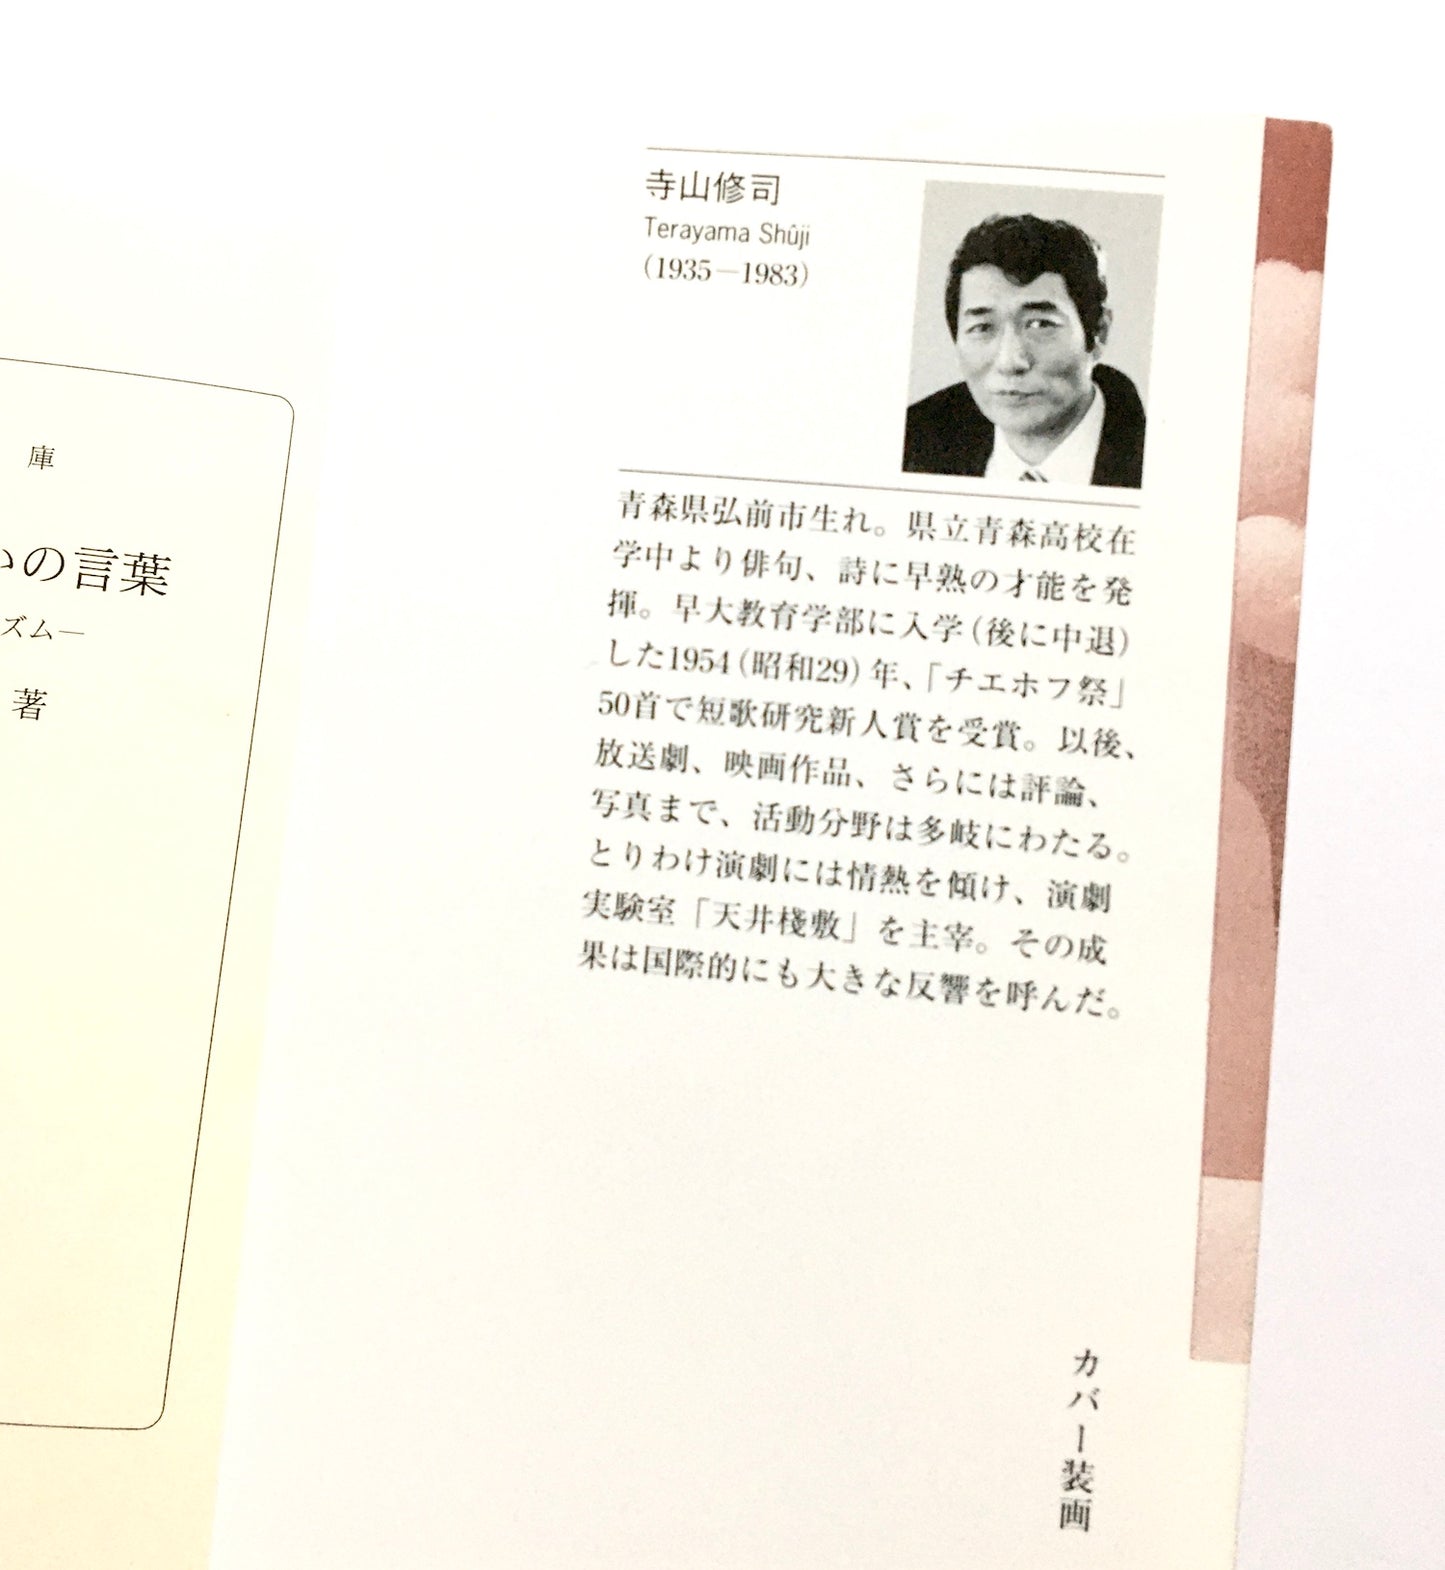 寺山修司
Terayama Shûji
(1935－1983)
青森県弘前市生れ。県立青森高校在
学中より俳句、詩に早熟の才能を発
揮。早大教育学部に入学(後に中退)
した1954(昭和29)年、「チエホフ祭」
50首で短歌研究新人賞を受賞。以後、
放送劇、映画作品、さらには評論、
写真まで、活動分野は多岐にわたる。
とりわけ演劇には情熱を傾け、演劇
実験室「天井棧敷」を主宰。その成
果は国際的にも大きな反響を呼んだ。
カバー装画
庫
いの言葉
ズム―
著